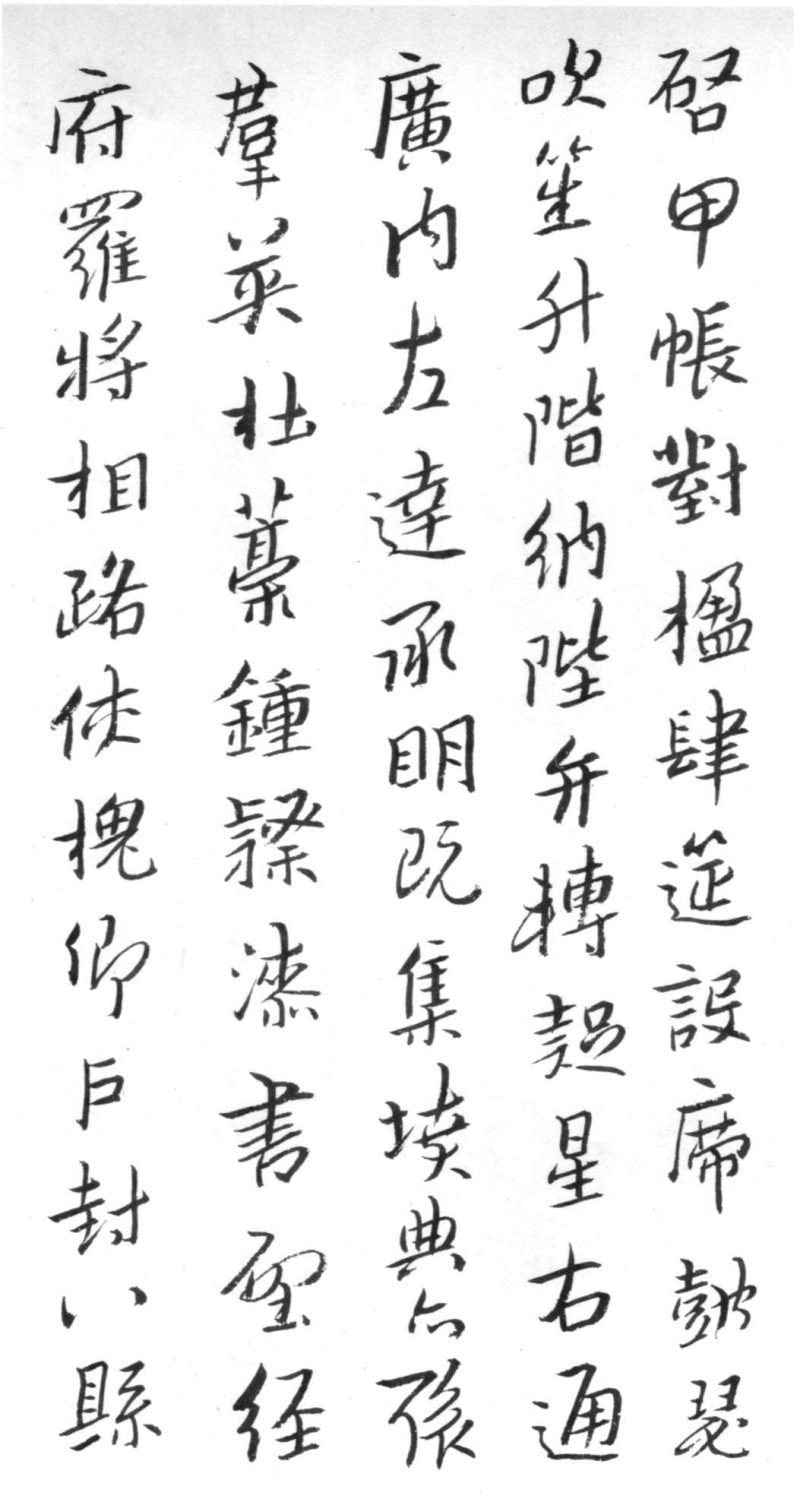 啓甲帳對楹肆筵設席鼓瑟
吹笙升階納陛弁轉疑星右通
廣内左達承明既集墳典亦聚
羣英杜藁鍾隸漆書壁経
府羅將相路俠槐卿戶封八縣